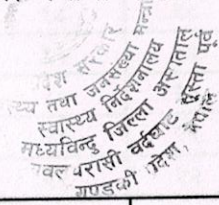 देश सरकार
स्थ्य तथा जनसंख्या मन्त्रा
स्वास्थ्य निर्देशनालय
मध्यविन्दु जिल्ला अस्पताल
नवलपरासी वर्दघाट सुस्ता पूर्व
गण्डकी प्रदेश, नेपाल